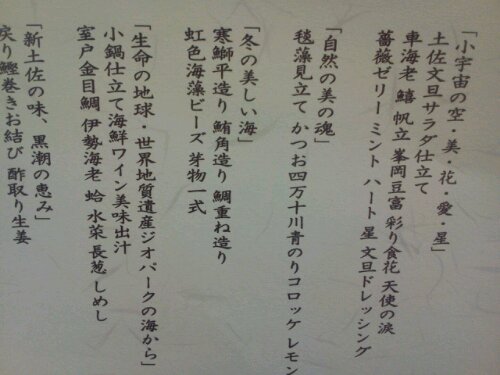 「小宇宙の空・美・花・愛・星」
土佐文旦サラダ仕立て
車海老 鱚 帆立 峯岡豆富 彩り食花 天使の涙
薔薇ゼリー ミント ハート 星 文旦ドレッシング
「自然の美の魂」
毬藻見立て かつお四万十川青のりコロッケ レモン
「冬の美しい海」
寒鰤平造り 鮪角造り 鯛重ね造り
虹色海藻ビーズ 芽物一式
「生命の地球・世界地質遺産ジオパークの海から」
小鍋仕立て 海鮮ワイン美味出汁
室戸金目鯛 伊勢海老 蛤 水菜 長葱 しめし
「新土佐の味、黒潮の恵み」
戻り鰹巻きお結び 酢取り生姜